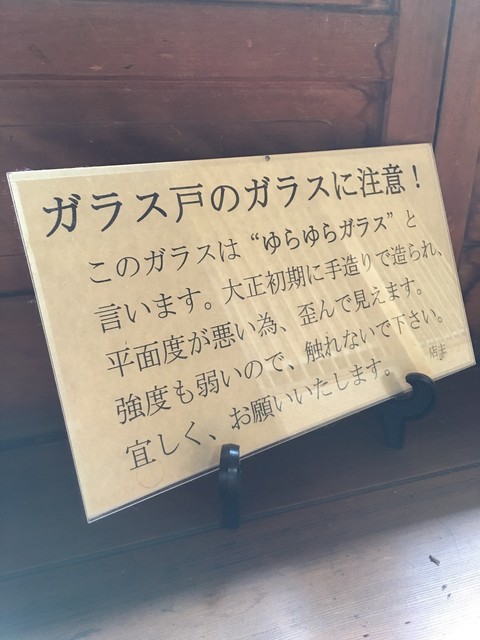 ガラス戸のガラスに注意！
このガラスは“ゆらゆらガラス”と
言います。大正初期に手造りで造られ、
平面度が悪い為、歪んで見えます。
強度も弱いので、触れないで下さい。
宜しく、お願いいたします。
店主